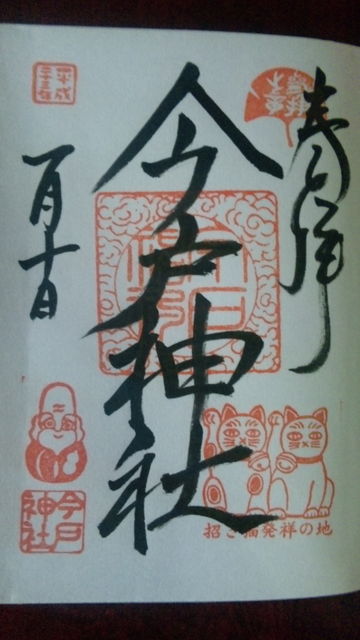 奉拝
今戸神社
招き猫発祥の地
平成
二十三年
一月十日
今戸
神社